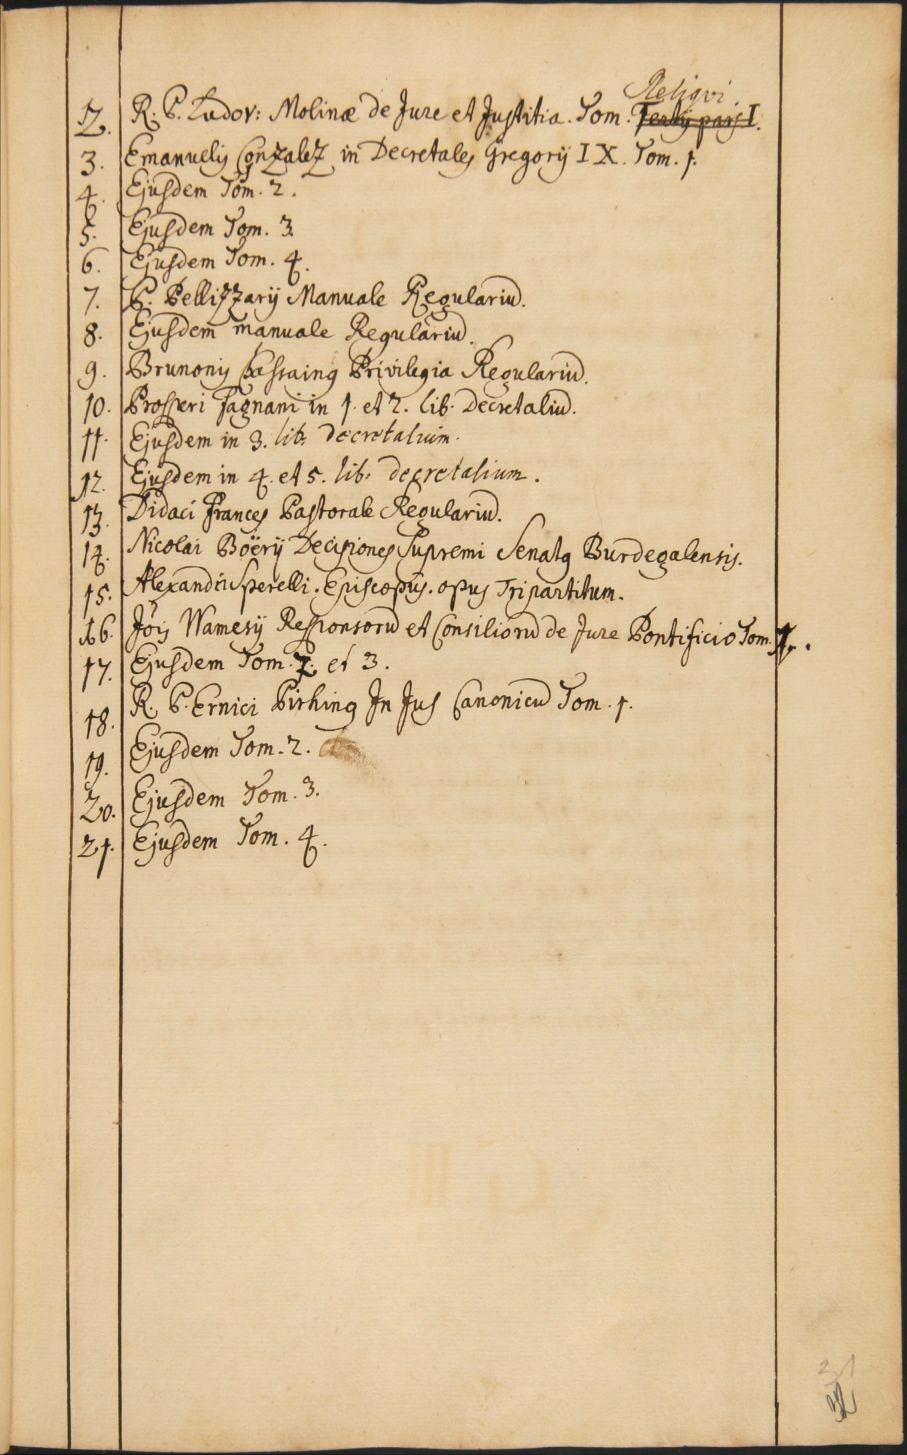 Reliqvi
2. R. P. Ludov: Molinæ de Jure et Justitia. Tom. Tertij pars I.
3. Emanuelis Gonzalez in Decretales Gregorij IX. Tom. 1.
4. Ejusdem Tom. 2.
5. Ejusdem Tom. 3
6. Ejusdem Tom. 4.
7. P. Pellizzarij Manuale Regulariū.
8. Ejusdem manuale Regulariū.
9. Brunonis Chassaing Privilegia Regulariū.
10. Prosperi Fagnani in 1. et 2. lib. Decretaliū.
11. Ejusdem in 3. lib. decretalium.
12. Ejusdem in 4. et 5. lib. decretalium.
13. Didaci Frances Pastorale Regulariū.
14. Nicolai Boërij Decisiones Supremi Senatq Burdegalensis.
15. Alexandri Sperelli. Episcopus. opus Tripartitum.
16. Jōis Wamesij Responsorū et Consiliorū de Jure Pontificio Tom. 1.
17. Ejusdem Tom. 2. et 3.
18. R. P. Ernici Pirhing In Jus Canonicū Tom. 1.
19. Ejusdem Tom. 2.
20. Ejusdem Tom. 3.
21. Ejusdem Tom. 4.
31